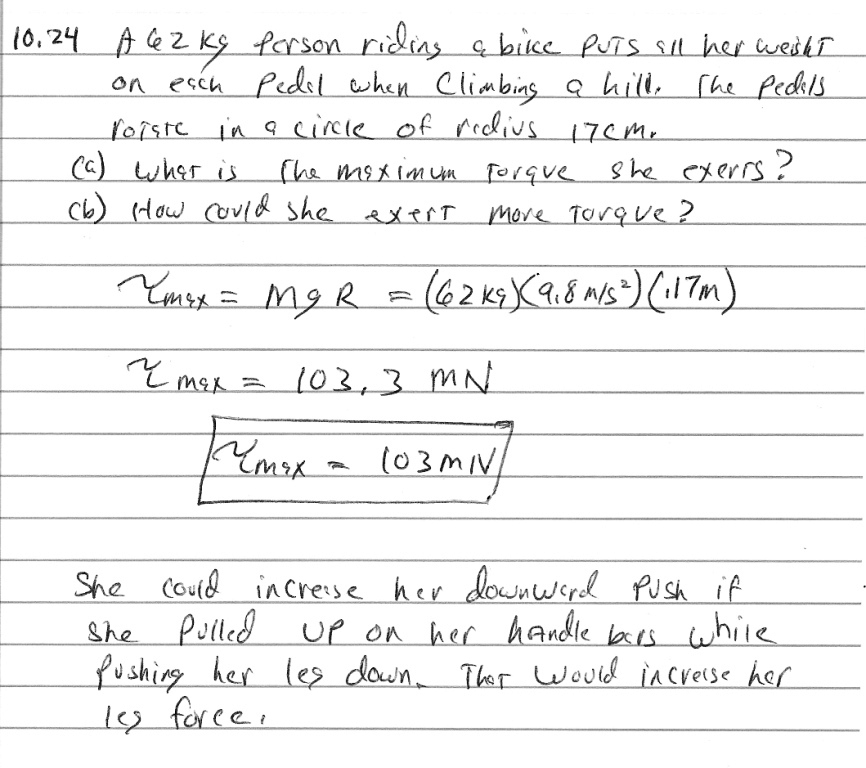 10.24 A 62 kg person riding a bike puts all her weight
on each Pedal when Climbing a hill. The Pedals
rotate in a circle of radius 17cm.
(a) What is The maximum Torque she exerts?
(b) How could she exert more Torque?
τmax = mgR = (62 kg)(9.8 m/s²)(.17m)
τmax = 103.3 mN
τmax = 103 mN
She could increase her downward Push if
she Pulled UP on her handle bars while
Pushing her leg down. That would increase her
leg force.